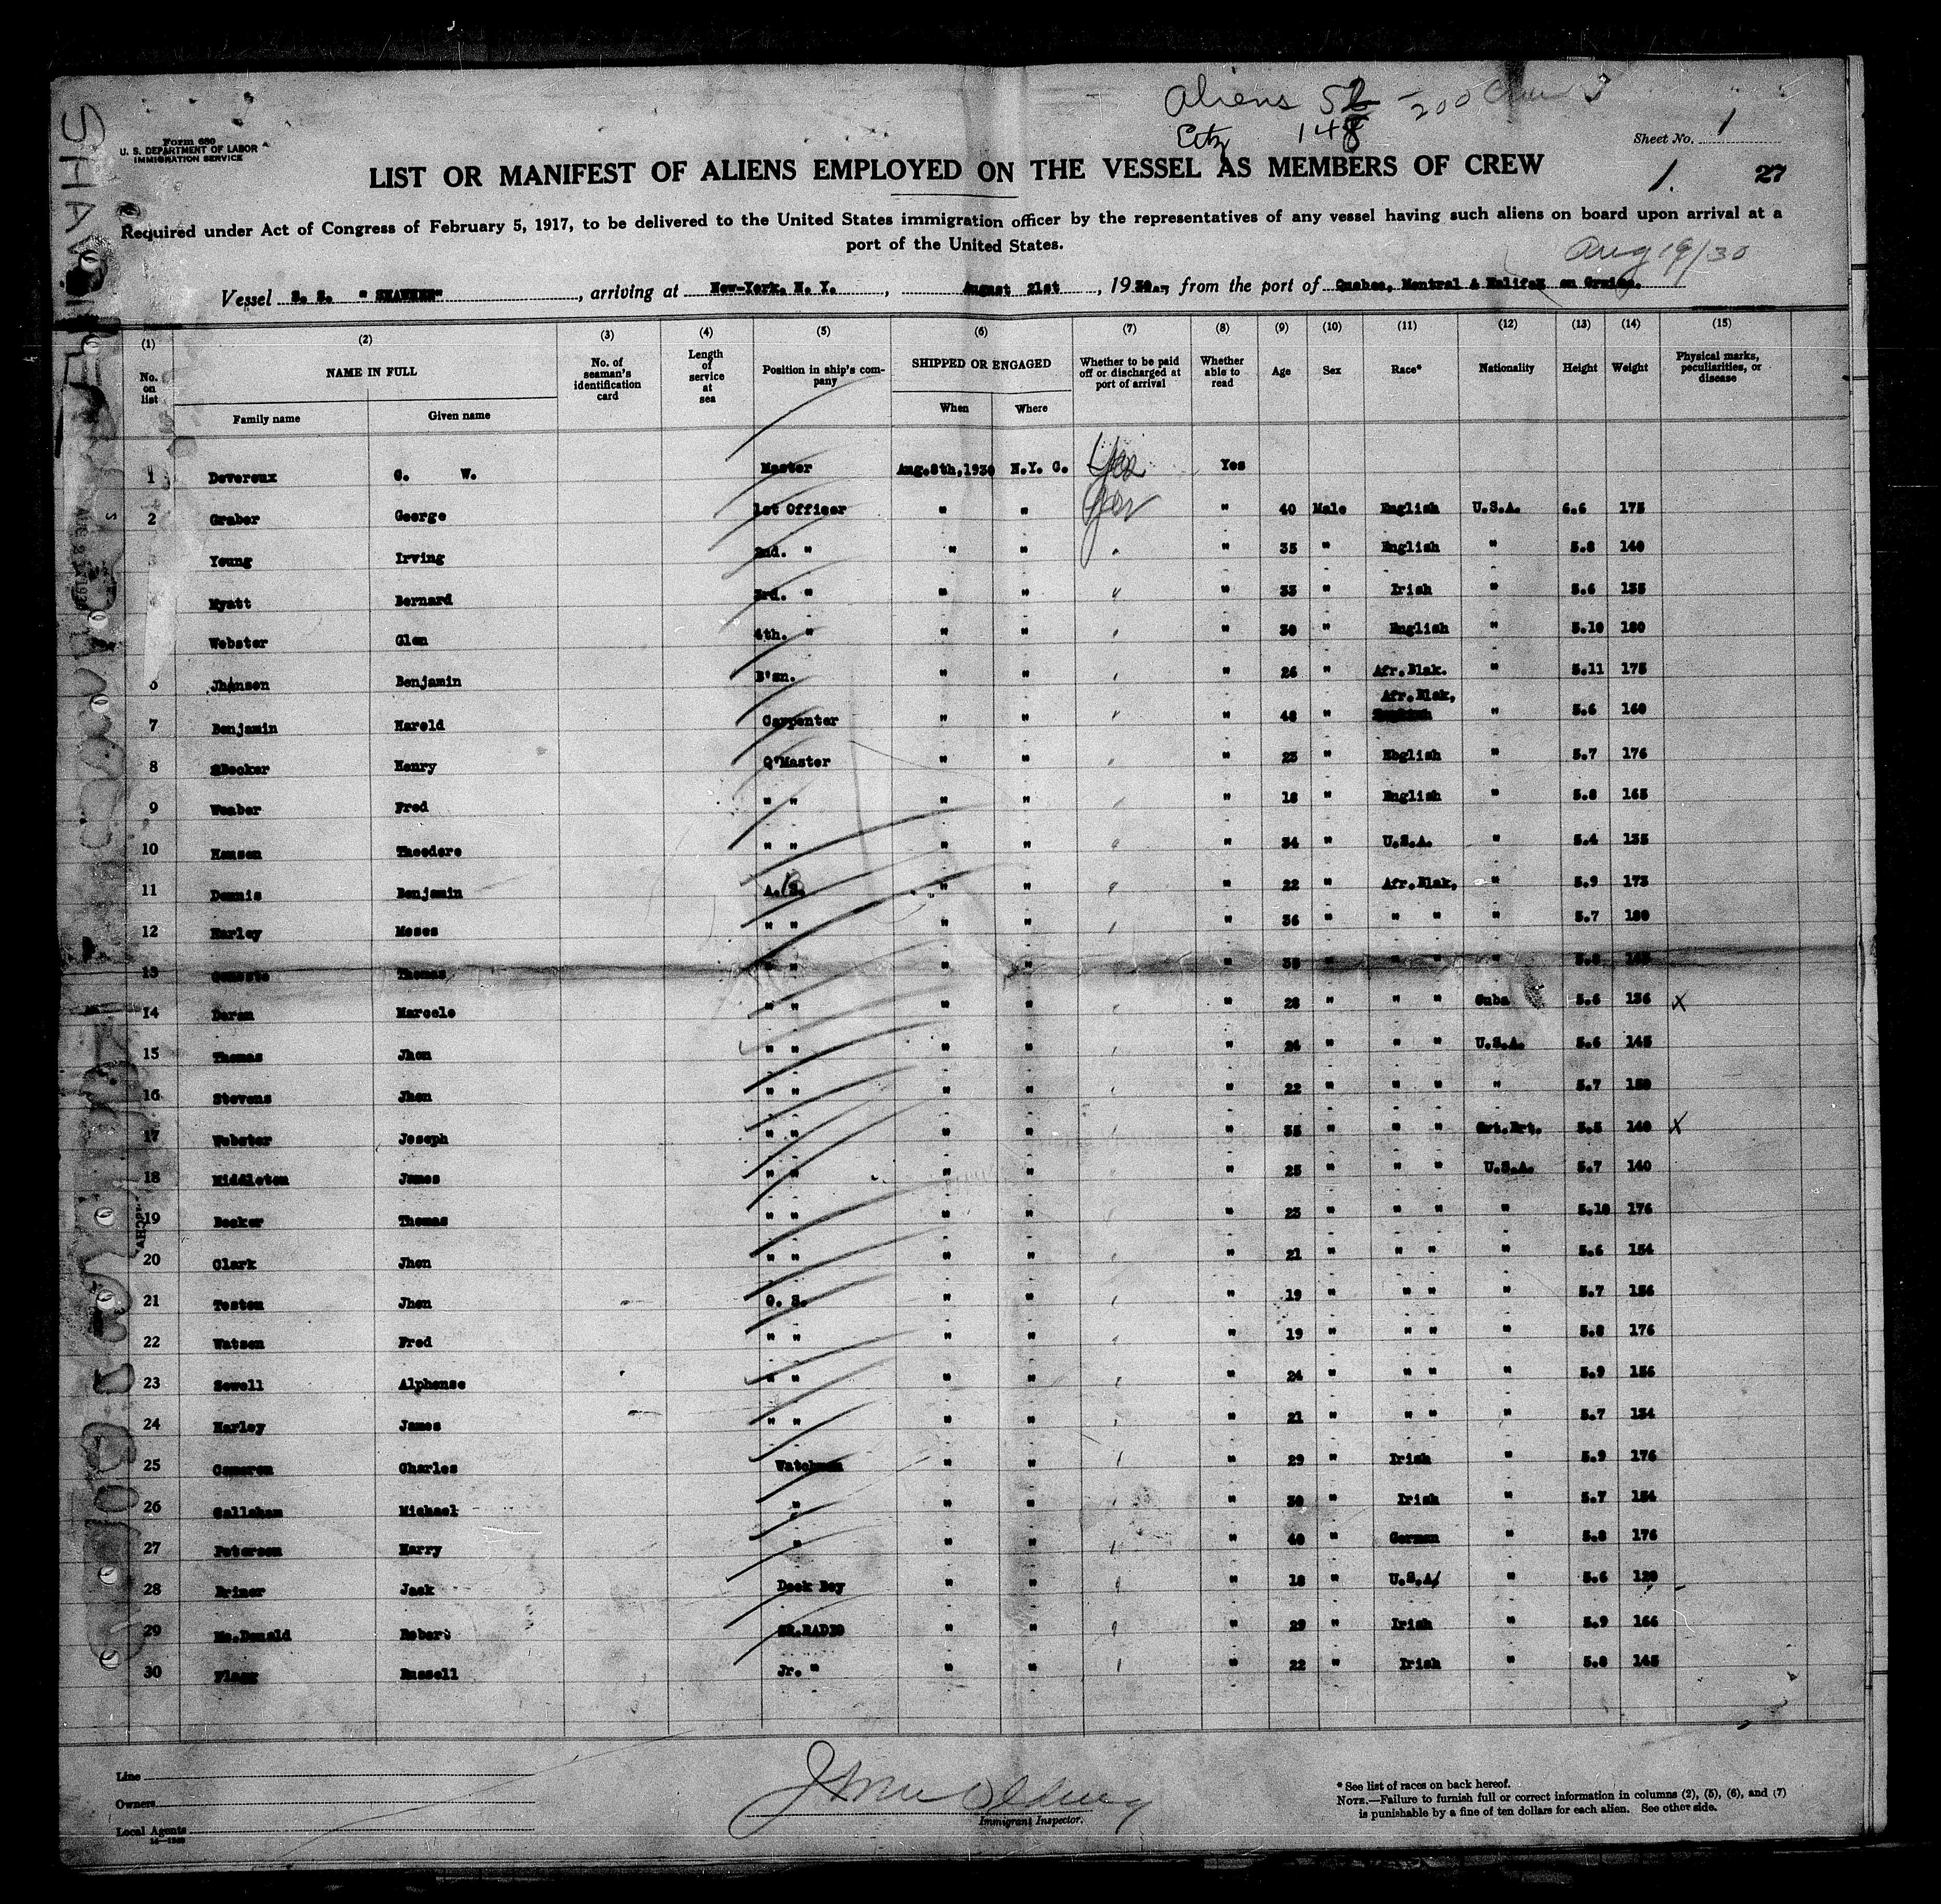 SHAWNEE
Aliens 52 - 200 Crew
Ctz 148
Form 680
U. S. DEPARTMENT OF LABOR
IMMIGRATION SERVICE
Sheet No. 1
LIST OR MANIFEST OF ALIENS EMPLOYED ON THE VESSEL AS MEMBERS OF CREW
1. 27
Required under Act of Congress of February 5, 1917, to be delivered to the United States immigration officer by the representatives of any vessel having such aliens on board upon arrival at a
port of the United States.
Aug 19/30
Vessel S. S. " SHAWNEE" , arriving at New-York. N. Y. , August 21st , 19 , from the port of Quebec, Montral & Halifax on Cruise.
(1) (2) (3) (4) (5) (6) (7) (8) (9) (10) (11) (12) (13) (14) (15)
No. on list NAME IN FULL Family name Given name No. of seaman's identification card Length of service at sea Position in ship's company SHIPPED OR ENGAGED When Where Whether to be paid off or discharged at port of arrival Whether able to read Age Sex Race* Nationality Height Weight Physical marks, peculiarities, or disease
1 Devereux G. W. Master Aug.8th,1930 N.Y. C. Yes Yes
2 Graber George 1st Officer " " " 40 Male English U.S.A. 6.6 175
Young Irving 2nd. " " " " 35 " English " 5.8 140
Myatt Bernard 3rd. " " " " " Irish " 5.6
Webster Glen 4th. " " " " 30 " English " 5.10 180
6 Jhonson Benjamin B'sn. " " " 26 " Afr.Blak. " 5.11 175
Afr.Blak,
7 Benjamin Harold Carpenter " " " 48 " " 5.6 160
8 Becker Henry Q'Master " " " 23 " English " 5.7 176
9 Weaber Fred " " " " " 18 " English " 5.8 165
10 Hensen Theodore " " " " " 34 " U.S.A. " 5.4 135
11 Dennis Benjamin A. B. " " " 22 " Afr.Blak, " 5.9 173
12 Harley Moses " " " " " 36 " " " " 5.7 180
13 Thomas " " " " " " " " "
14 Doran Marcelo " " " " " 28 " " " Cuba 5.6 136 X
15 Thomas Jhon " " " " " 24 " " " U.S.A. 5.6 145
16 Stevens Jhon " " " " " 22 " " " " 5.7 150
17 Webster Joseph " " " " " 35 " " " Grt.Brt. 5.5 140 X
18 Middleton James " " " " " 25 " " " U.S.A. 5.7 140
19 Booker Thomas " " " " " 23 " " " " 5.10 176
20 Clark Jhon " " " " " 21 " " " " 5.6 154
21 Teston Jhon O. S. " " " 19 " " " " 5.7 156
22 Watson Fred " " " " " 19 " " " " 5.8 176
23 Sewell Alphonso " " " " " 24 " " " " 5.9 156
24 Harley James " " " " " 21 " " " " 5.7 134
25 Cameron Charles Watchman " " " 29 " Irish " 5.9 176
26 Callaham Michael " " " " 30 " Irish " 5.7 154
27 Peterson Harry " " " " 40 " German " 5.8 176
28 Briner Jack Deck Boy " " " 18 " U.S.A. " 5.6 120
29 Mc.Donald Robert SR.RADIO " " " 29 " Irish " 5.9 166
30 Flagg Russell Jr. " " " " 22 " Irish " 5.8 145
Line
Owners
Local Agents
Immigrant Inspector.
* See list of races on back hereof.
NOTE.—Failure to furnish full or correct information in columns (2), (5), (6), and (7)
is punishable by a fine of ten dollars for each alien. See other side.